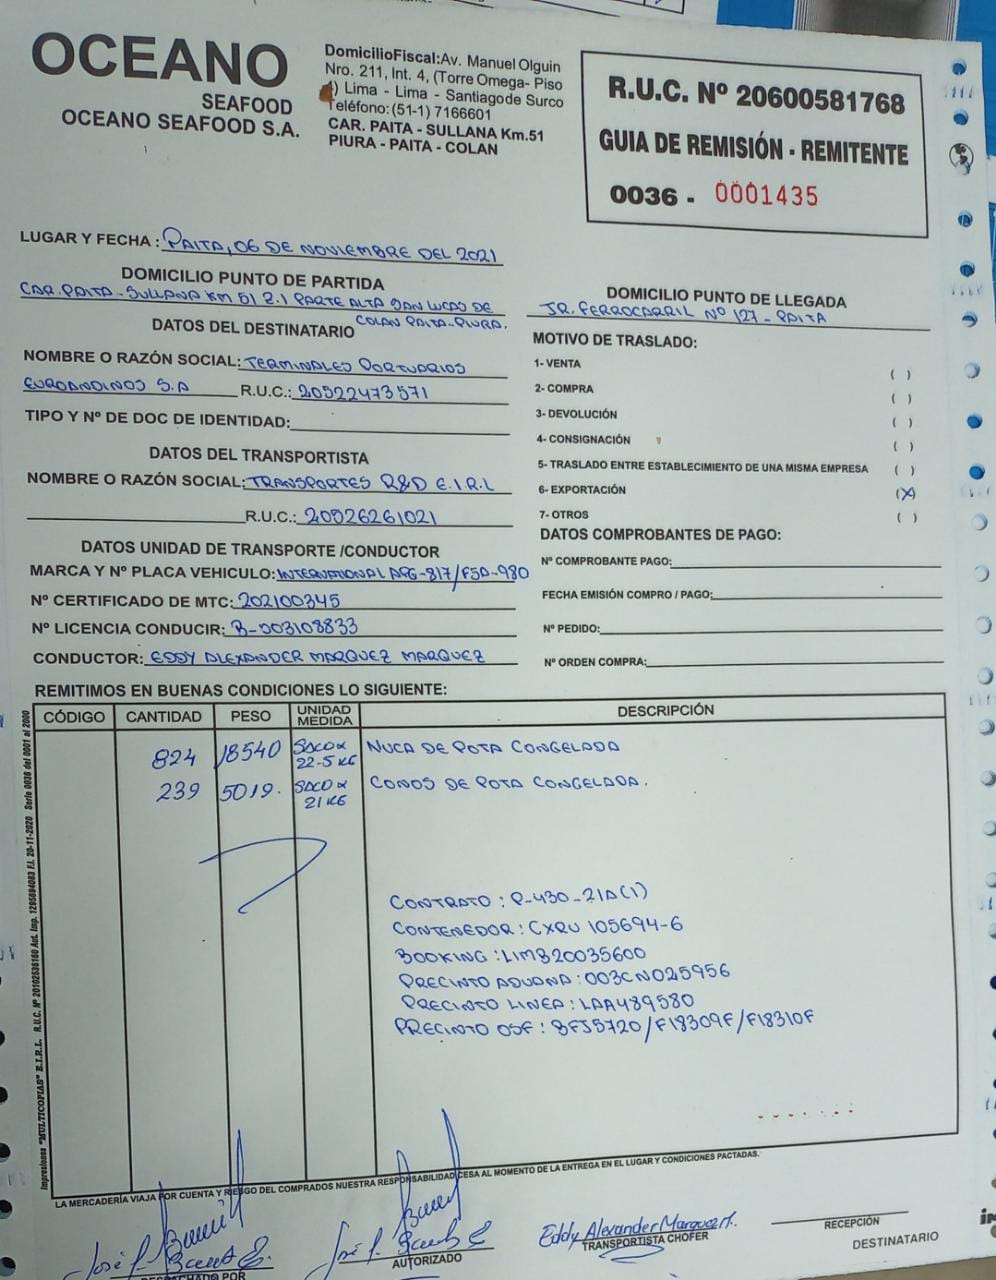 OCEANO
SEAFOOD
OCEANO SEAFOOD S.A.
DomicilioFiscal:Av. Manuel Olguin
Nro. 211, Int. 4, (Torre Omega- Piso
) Lima - Lima - Santiagode Surco
Teléfono:(51-1) 7166601
CAR. PAITA - SULLANA Km.51
PIURA - PAITA - COLAN
R.U.C. Nº 20600581768
GUIA DE REMISIÓN - REMITENTE
0036 - 0001435
LUGAR Y FECHA : PAITA, 06 DE NOVIEMBRE DEL 2021
DOMICILIO PUNTO DE PARTIDA
CAR. PAITA - SULLANA KM 51 2.1 PARTE ALTA SAN LUCAS DE
COLAN PAITA-PIURA.
DOMICILIO PUNTO DE LLEGADA
JR. FERROCARRIL Nº 127 - PAITA
DATOS DEL DESTINATARIO
NOMBRE O RAZÓN SOCIAL: TERMINALES PORTUARIOS
EUROANDINOS S.A R.U.C.: 20522473571
TIPO Y Nº DE DOC DE IDENTIDAD:
DATOS DEL TRANSPORTISTA
NOMBRE O RAZÓN SOCIAL: TRANSPORTES R&D E.I.R.L
R.U.C.: 20526261021
DATOS UNIDAD DE TRANSPORTE /CONDUCTOR
MARCA Y Nº PLACA VEHICULO: INTERNATIONAL APG-817/F5A-980
Nº CERTIFICADO DE MTC: 202100345
Nº LICENCIA CONDUCIR: B-003108833
CONDUCTOR: EDDY ALEXANDER MARQUEZ MARQUEZ
MOTIVO DE TRASLADO:
1- VENTA ( )
2- COMPRA ( )
3- DEVOLUCIÓN ( )
4- CONSIGNACIÓN ( )
5- TRASLADO ENTRE ESTABLECIMIENTO DE UNA MISMA EMPRESA ( )
6- EXPORTACIÓN (X)
7- OTROS ( )
DATOS COMPROBANTES DE PAGO:
Nº COMPROBANTE PAGO:
FECHA EMISIÓN COMPRO / PAGO:
Nº PEDIDO:
Nº ORDEN COMPRA:
REMITIMOS EN BUENAS CONDICIONES LO SIGUIENTE:
CÓDIGO CANTIDAD PESO UNIDAD MEDIDA DESCRIPCIÓN
824 18540 SACO x 22.5 KG NUCA DE POTA CONGELADA
239 5019. SACO x 21 KG CONOS DE POTA CONGELADA.
CONTRATO : P-430-21A(1)
CONTENEDOR : CXRU 105694-6
BOOKING : LIM320035600
PRECINTO ADUANA : 003CN025956
PRECINTO LINEA : LAA489580
PRECINTO OSF : BFJ5720/F18309F/F18310F
Impresiones "MULTICOPIAS" E.I.R.L. R.U.C. Nº 20102536160 Aut. Imp. 1295694083 F.I. 20-11-2020 Serie 0036 del 0001 al 2000
LA MERCADERÍA VIAJA POR CUENTA Y RIESGO DEL COMPRADOS NUESTRA RESPONSABILIDAD CESA AL MOMENTO DE LA ENTREGA EN EL LUGAR Y CONDICIONES PACTADAS.
DESPACHADO POR
AUTORIZADO
Eddy Alexander Marquez M.
TRANSPORTISTA CHOFER
RECEPCIÓN
DESTINATARIO